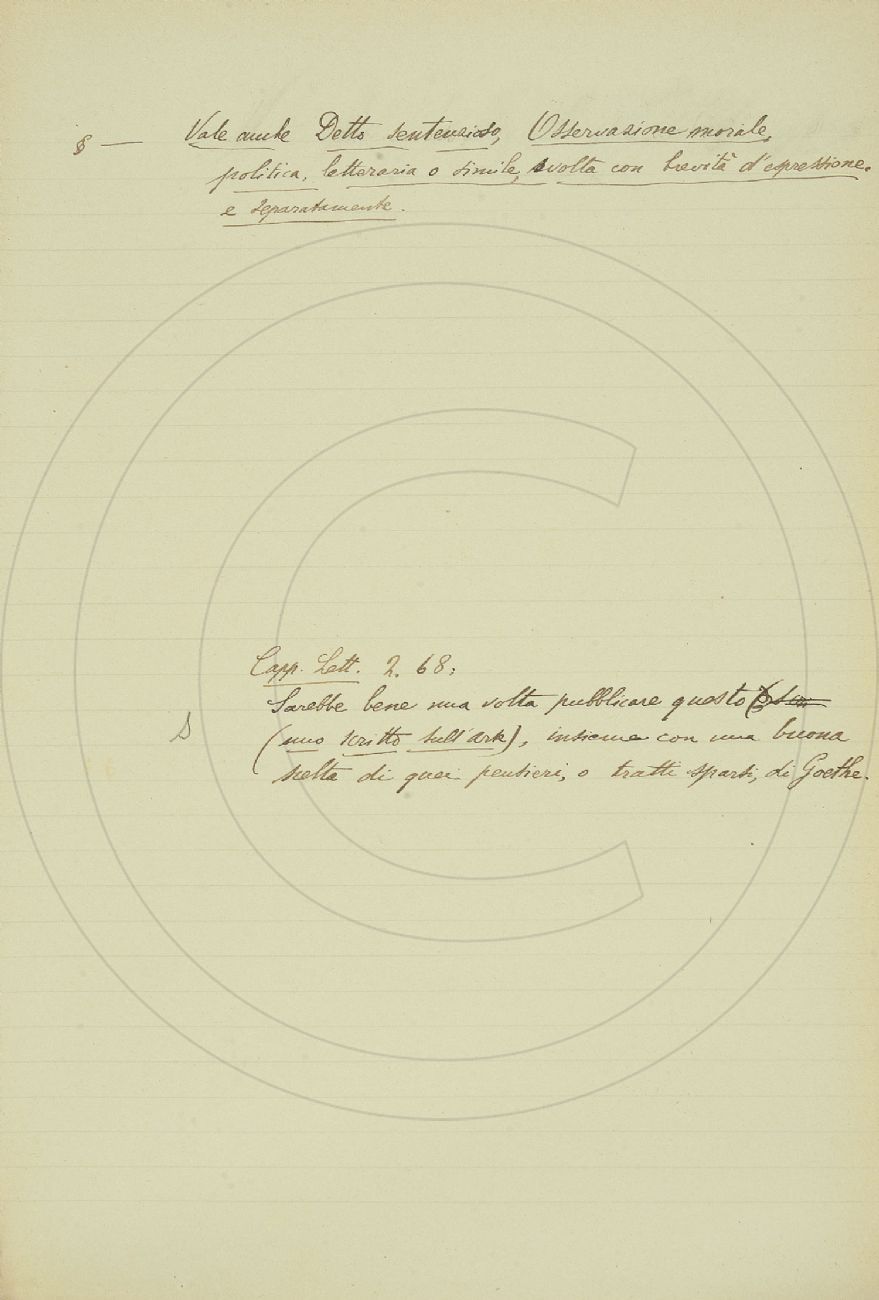 § — Vale anche Detto sentenzioso, Osservazione morale,
politica, letteraria o simile, svolta con brevità d'espressione.
e separatamente.
Capp. Lett. 2. 68:
Sarebbe bene una volta pubblicare questo
(uno scritto sull'arte), insieme con una buona
scelta di quei pensieri, o tratti sparsi, di Goethe.